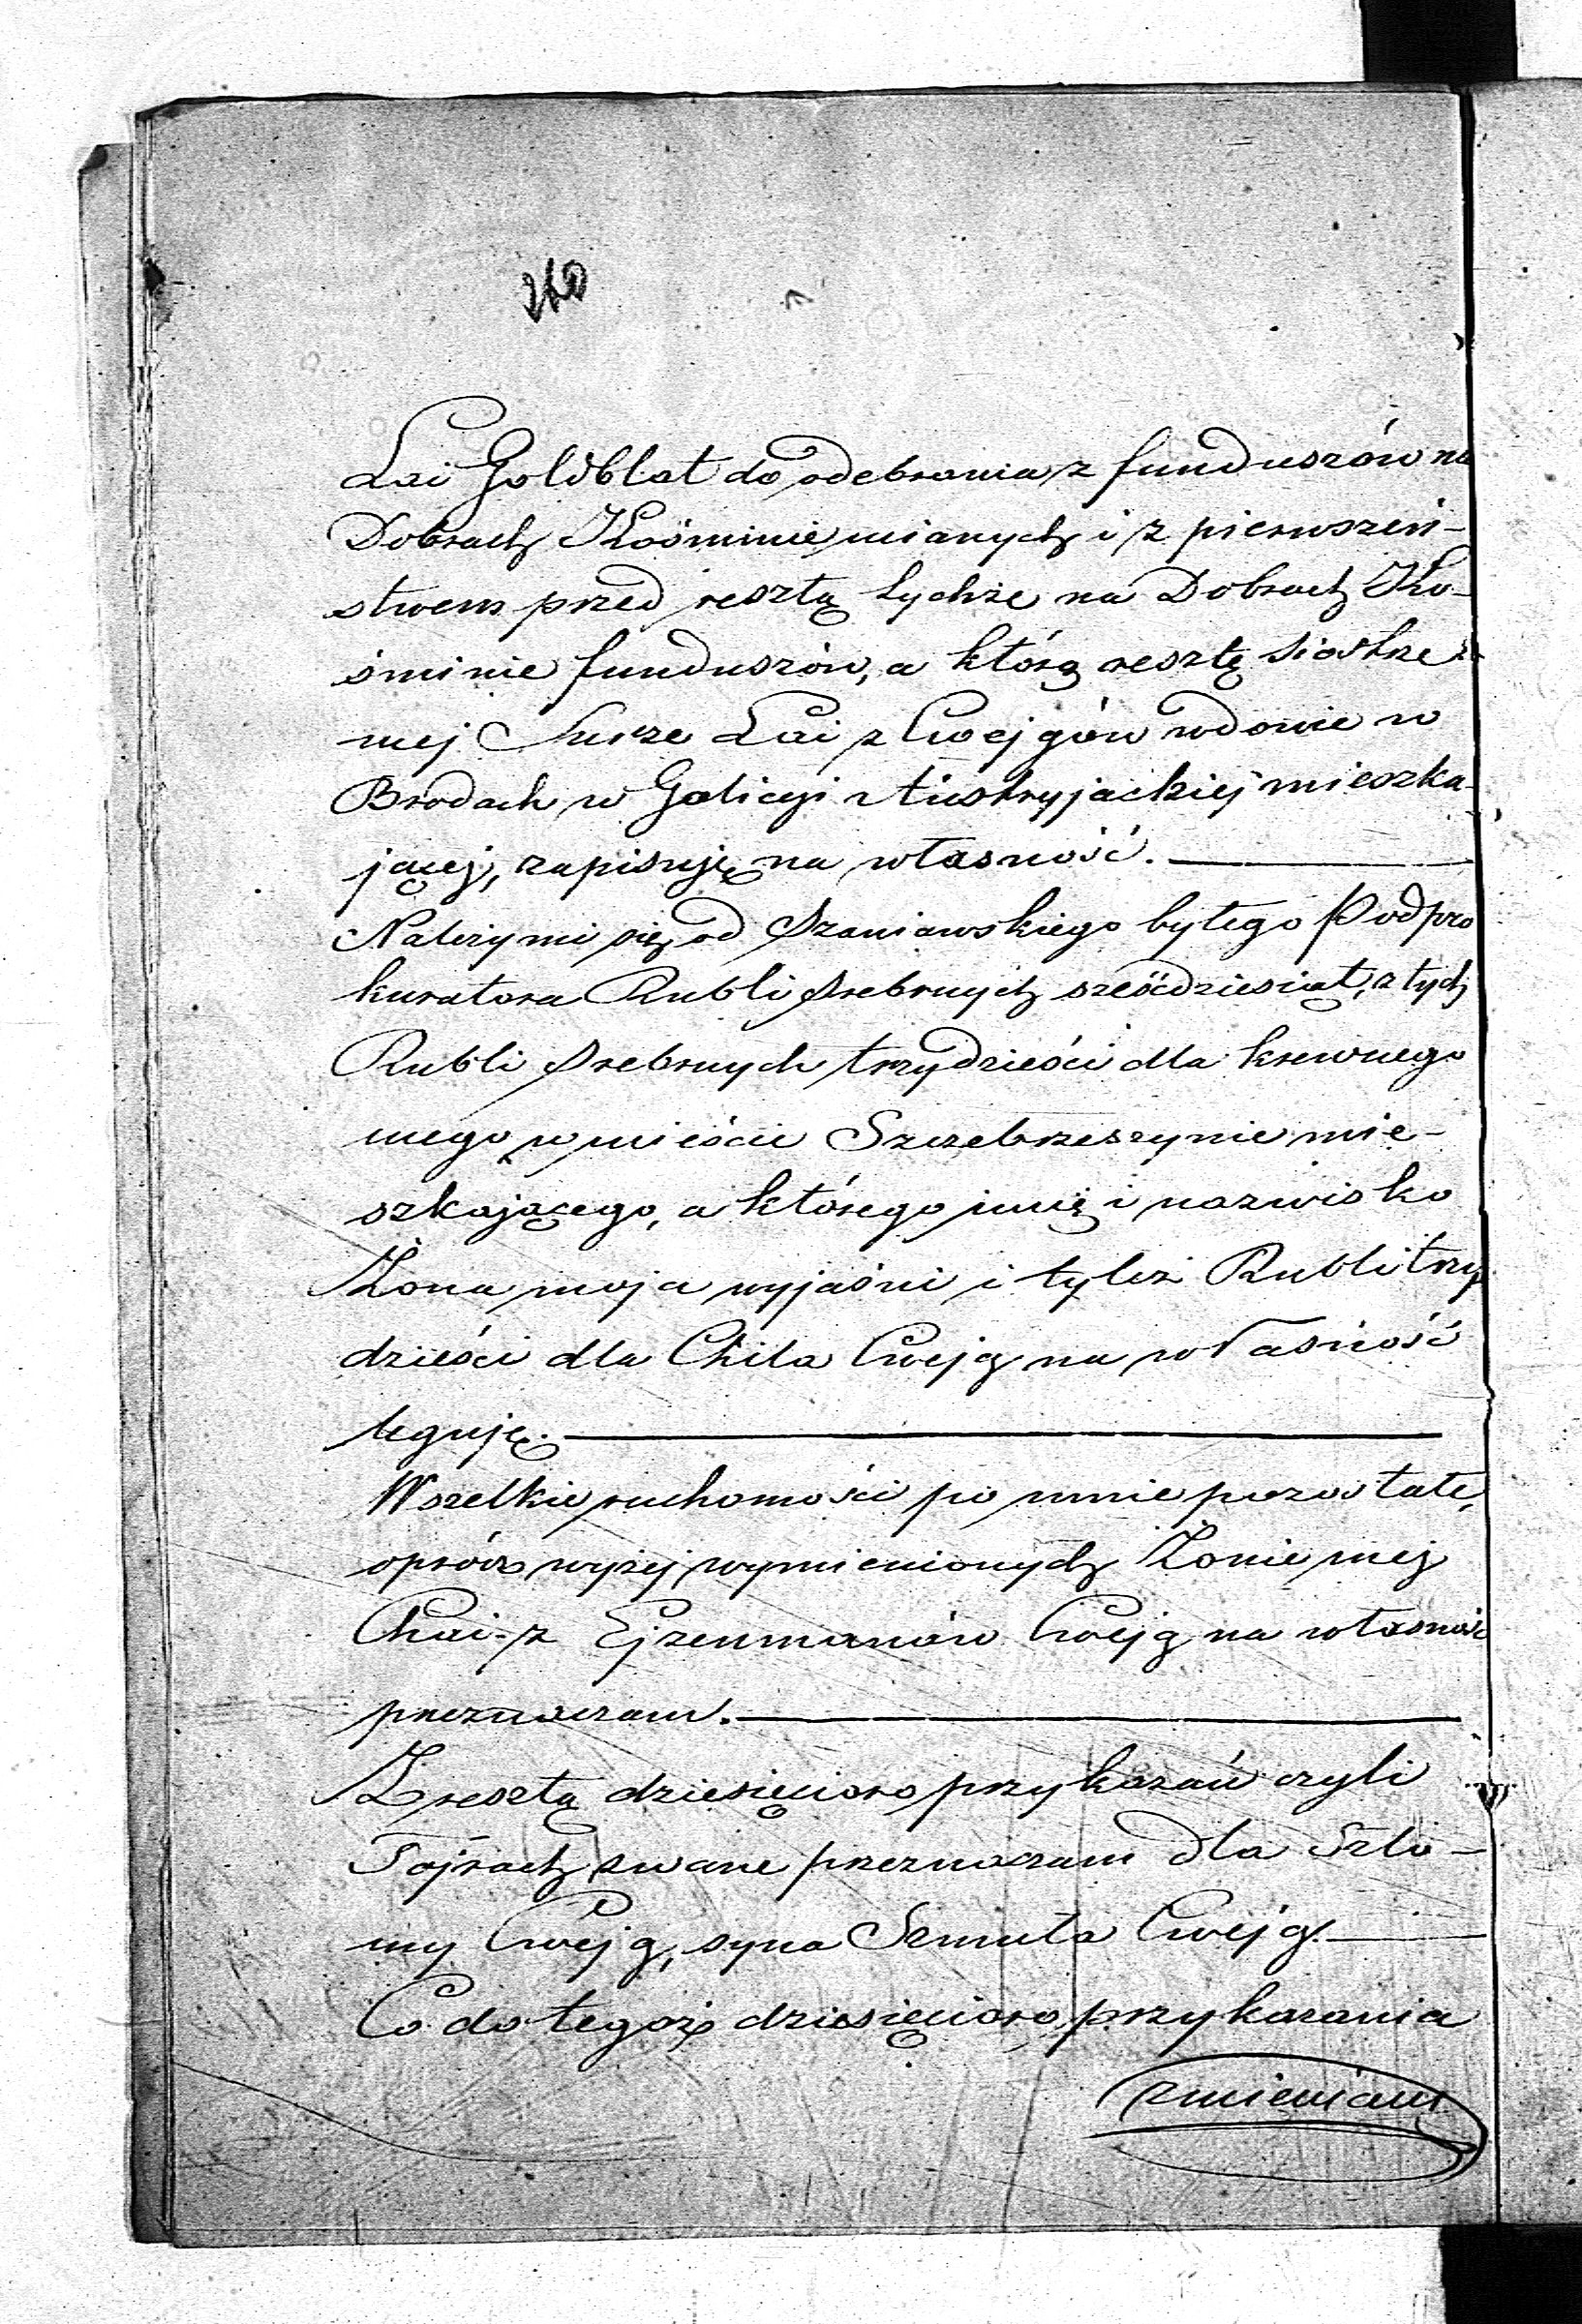 Lai Goldblat do odebrania z funduszów na
Dobrach Kośminie mianych i z pierwszeń-
stwem przed resztą tychże na Dobrach Ko-
śminie funduszów, a którą resztę siostrze
mej Surze Lai z Cwejgów wdowie w
Brodach w Galicyi Austryjackiej mieszka-
jącej, zapisuję na własność.
Należy mi się od Szaniawskiego byłego Podpro
kuratora Rubli srebrnych sześćdziesiąt, z tych
Rubli srebrnych trzydzieści dla krewnego
mego w mieście Szczebrzeszynie mie-
szkającego, a którego imię i nazwisko
Żona moja wyjaśni i tyleż Rubli trzy
dzieści dla Chila Cwejg na własność
leguję.
Wszelkie ruchomości po mnie pozostałe,
oprócz wyżej wymienionych Żonie mej
Chai z Ejzenmanów Cwejg na własność
przeznaczam.
Zresztą dziesięcioro przykazań czyli
Tojrach zwane przeznaczam dla Szlo-
my Cwejg, syna Szmula Cwejg.
Co do tegoż dziesięcioro przykazania
zmieniam